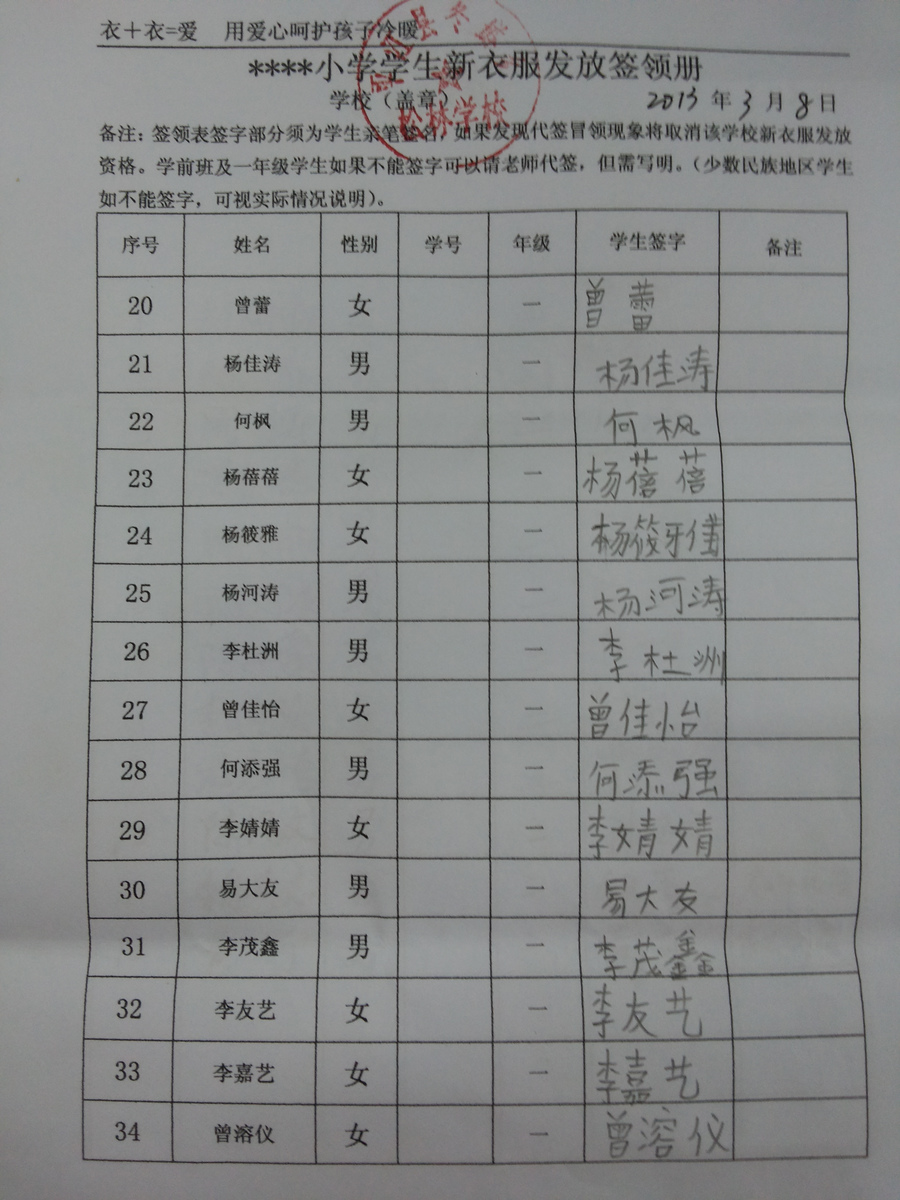 衣＋衣=爱 用爱心呵护孩子冷暖
****小学学生新衣服发放签领册
学校（盖章） 2013 年 3 月 8 日
松林学校
备注：签领表签字部分须为学生亲笔签名，如果发现代签冒领现象将取消该学校新衣服发放
资格。学前班及一年级学生如果不能签字可以请老师代签，但需写明。（少数民族地区学生
如不能签字，可视实际情况说明）。
序号 姓名 性别 学号 年级 学生签字 备注
20 曾蕾 女 一 曾蕾
21 杨佳涛 男 一 杨佳涛
22 何枫 男 一 何枫
23 杨蓓蓓 女 一 杨蓓蓓
24 杨筱雅 女 一 杨筱雅
25 杨河涛 男 一 杨河涛
26 李杜洲 男 一 李杜洲
27 曾佳怡 女 一 曾佳怡
28 何添强 男 一 何添强
29 李婧婧 女 一 李婧婧
30 易大友 男 一 易大友
31 李茂鑫 男 一 李茂鑫
32 李友艺 女 一 李友艺
33 李嘉艺 女 一 李嘉艺
34 曾溶仪 女 一 曾溶仪